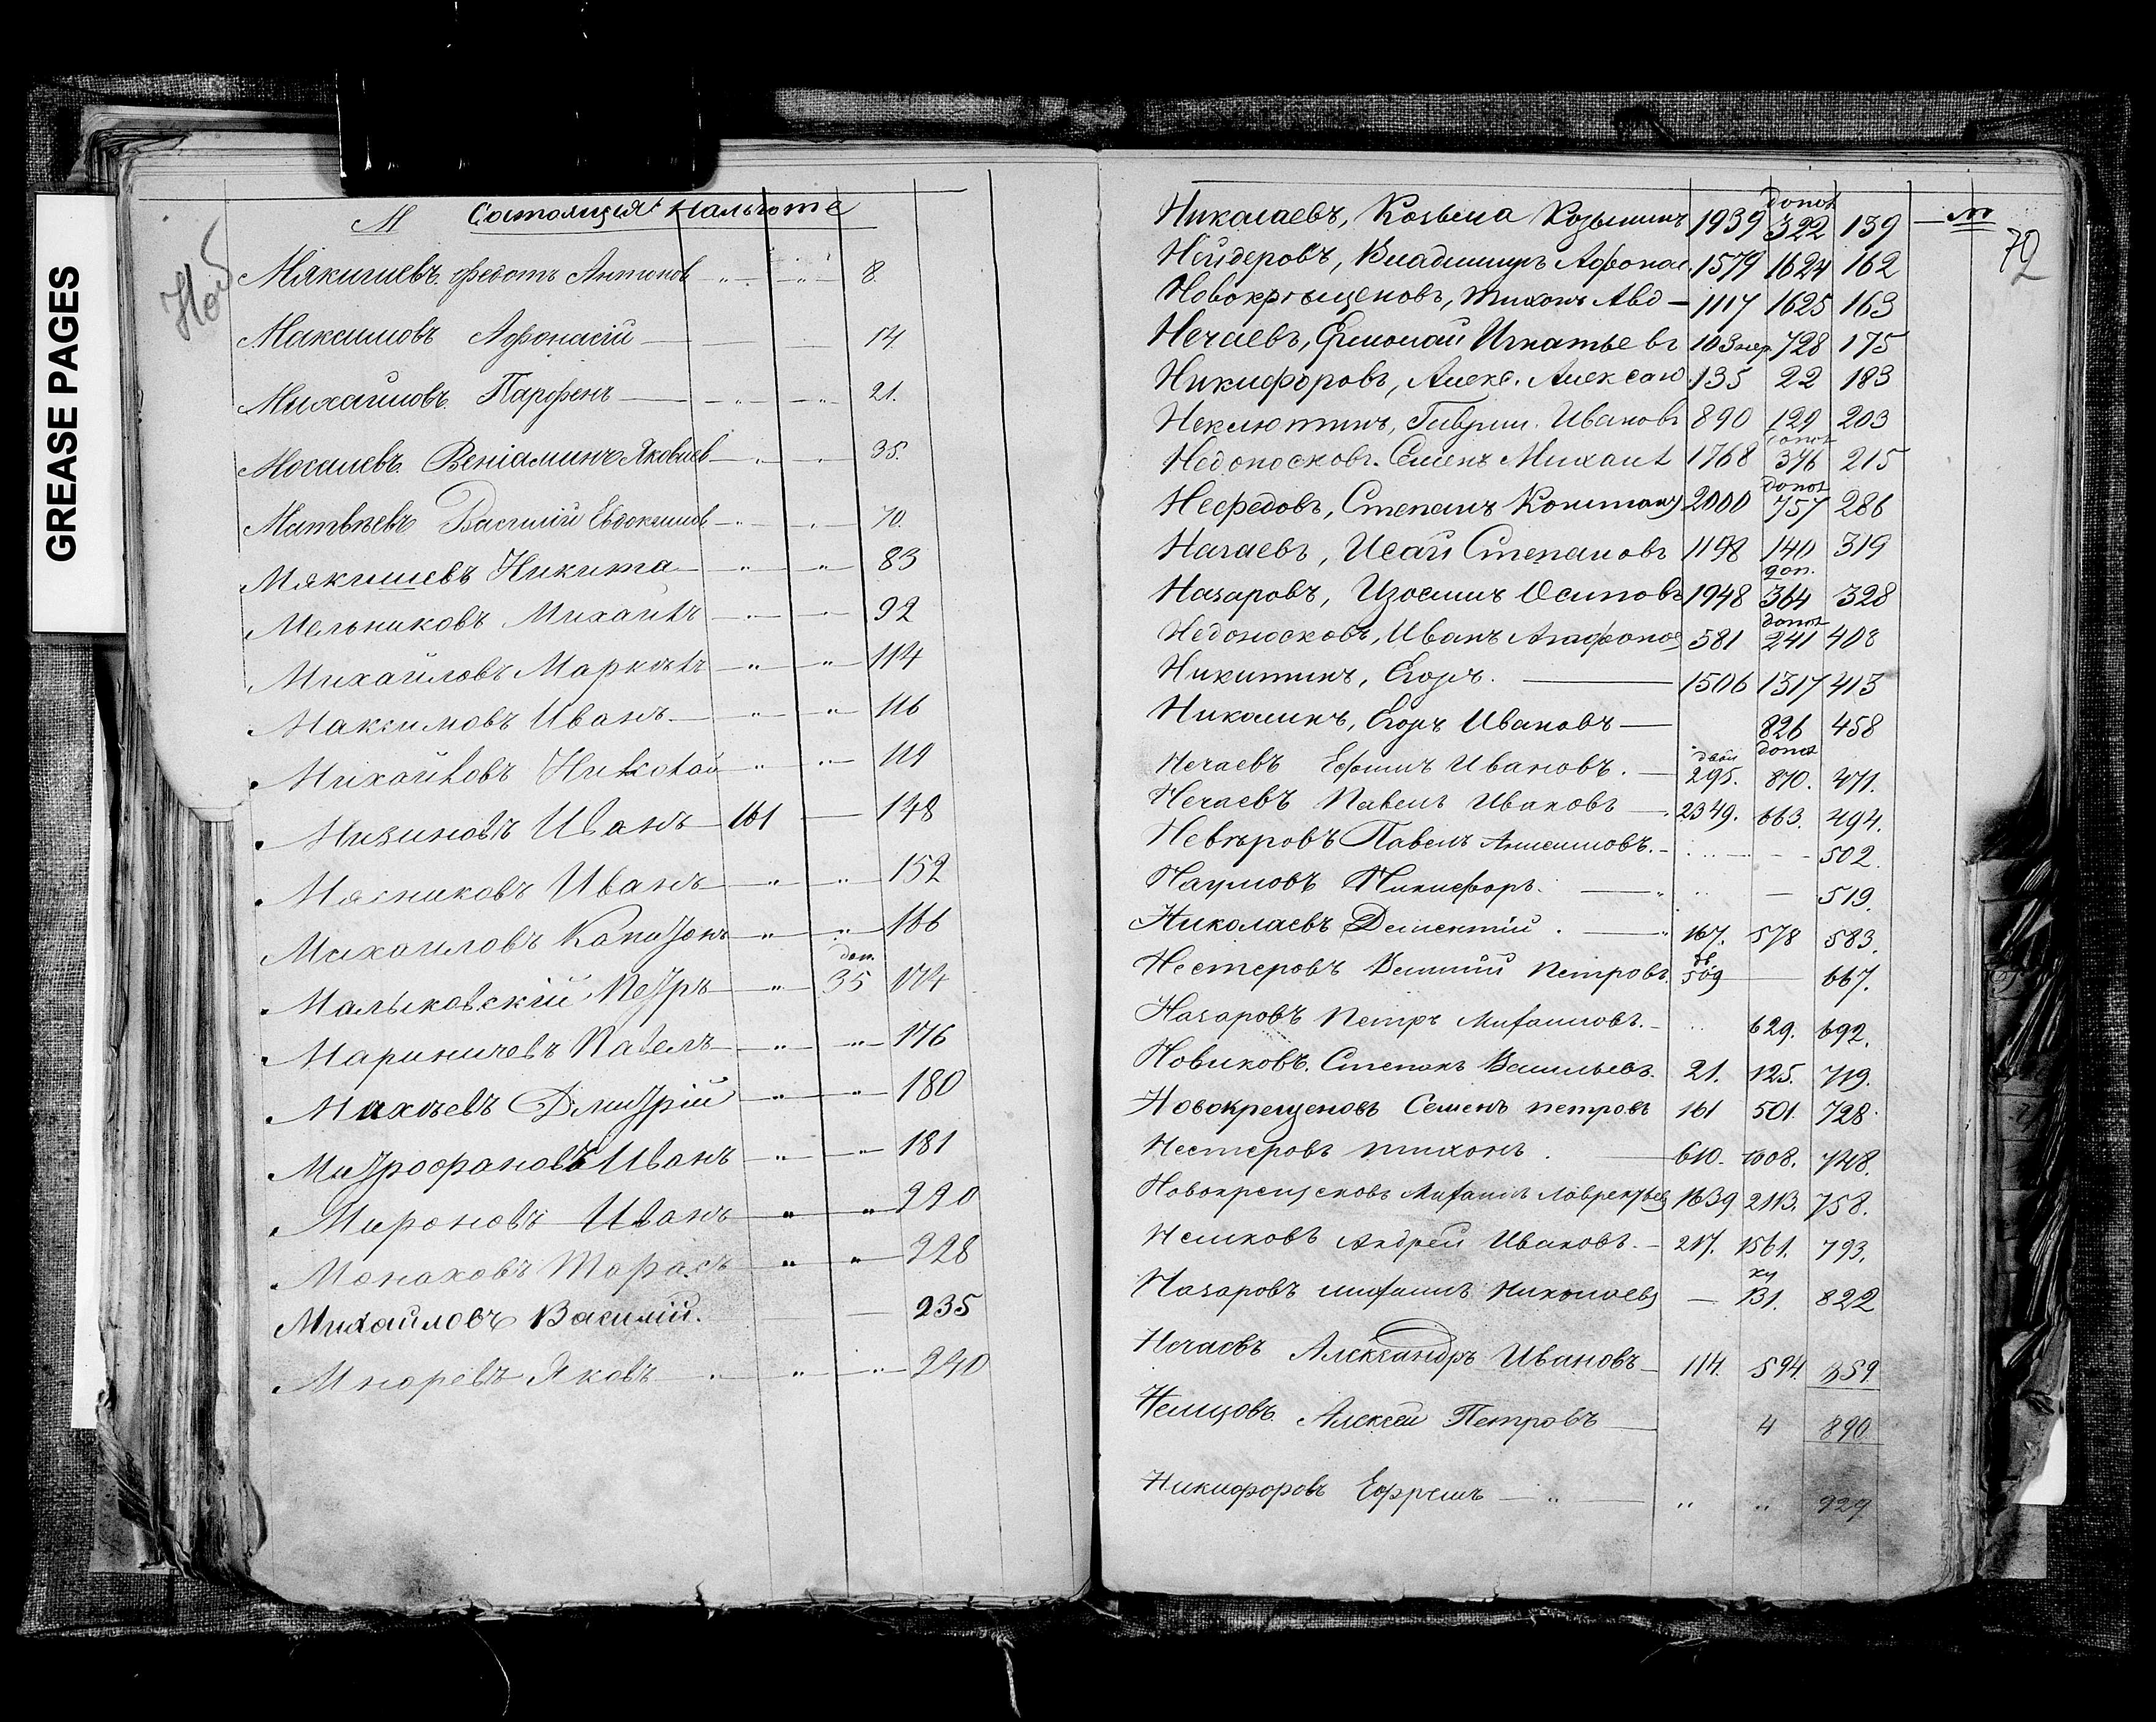 GREASE PAGES
М Состоящія на льготе
Мякишевъ Федотъ Антоновъ — „ — „ — 8.
Максимовъ Афонасій — — — 14.
Михайловъ Парфенъ — „ — „ 21.
Мосалевъ Веніаминъ Яковлев — „ — „ — 35.
Матвѣевъ Василій Евдокимов — „ — „ — 70.
Мякишевъ Никита — „ — „ — 83
Мельниковъ Михаилъ — „ — „ — 92
Михайловъ Маркелъ — „ — „ — 114
Максимовъ Иванъ — „ — „ — 116
Михайловъ Николай — „ — „ — 119
Мизиновъ Иванъ — 161 — 148
Мясниковъ Иванъ — „ — „ — 152
Михаиловъ Капитонъ — „ — „ — 166
доп.
Малыковскій Петръ — „ — 35 174
Мариничевъ Павелъ — „ — „ — 176
Михѣевъ Дмитрій — „ — „ — 180
Митрофановъ Иванъ — „ — „ — 181
Мироновъ Иванъ — „ — „ — 220
Монаховъ Тарасъ — „ — „ — 228
Михайловъ Василій. — — 235
Яковъ — „ — „ — „ — 240
72
допол
Николаевъ, Козьма Козьминъ 1939 322 139
Нейдеровъ, Владимиръ Афонас. 1579 1624 162
Новокрѣщеновъ, Тихонъ Авд — 1117 1625 163
Нечаевъ, Ермолай Игнатьевъ 103 728 175
Никифоровъ, Алекс. Алексан. 135 22 183
Неклютинъ, Гаврил. Ивановъ 890 129 203
допол
Недоносковъ. Семенъ Михаил 1768 376 215
допол
Нефедовъ, Степанъ 2000 757 286
Нагаевъ, Исай Степановъ 1198 140 319
доп.
Назаровъ, Изосимъ Осиповъ 1948 364 328
допол
Недоносковъ, Иванъ Агафонов 581 241 408
Никитинъ, Егоръ. — 1506 1317 413
Николинъ, Егоръ Ивановъ — 826 458
двой допол
Нечаевъ Ефимъ Ивановъ. — 295. 870. 471.
Нечаевъ Павелъ Ивановъ — 2349. 663. 494.
Невѣровъ Павелъ Анисимовъ. — 502.
Наумовъ Никифоръ. — „ — 519.
Николаевъ Дементій. — „ 167. 578 583.
дв.
Нестеровъ Василій Петровъ. 509 — 667.
Назаровъ Петръ Михаиловъ. — 629. 692.
Новиковъ. Степанъ Васильевъ. 21. 125. 719.
Новокрещеновъ Семенъ Петровъ 161 501. 728.
Нестеровъ Тихонъ. — 610. 1008. 748.
Новокрещеновъ Михаилъ Лаврентьев 1639 2113. 758.
Андрей Ивановъ. — 217. 1561. 793.
Назаровъ Михаилъ Николаев — 131. 822
Нечаевъ Александръ Ивановъ — 114. 594. 859
Немцовъ. Алексей Петровъ — 4 890
Никифоровъ Ефремъ — „ — „ „ 929